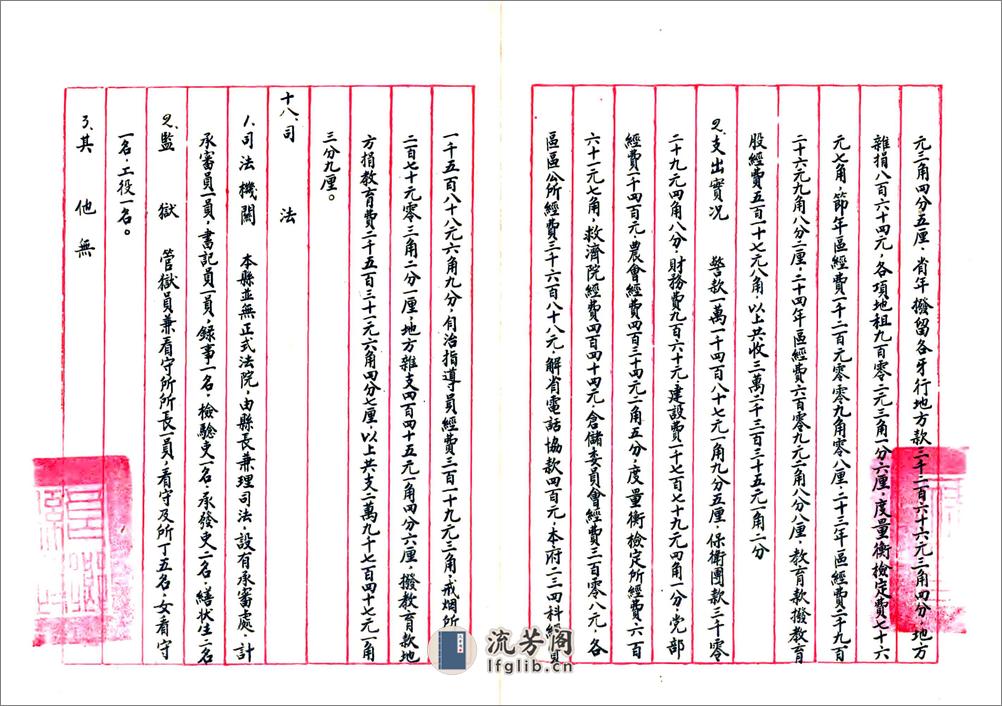 元三角四分五厘，省年撥留各牙行地方款三千二百六十六元三角四分，地方
雜捐八百六十四元，各項地租九百零二元三角一分六厘，度量衡檢定費七十六
元七角，節年區經費一千二百元零零九角零八厘，二十三年區經費二千九百
二十六元九角八分二厘，二十四年區經費六百零九元二角八分八厘，教育款撥教育
股經費五百一十七元八角，以上共收三萬二千三百三十五元一角二分
2、支出實況　警款一萬一千四百八十七元一角九分五厘，保衛團款三千零
二十九元四角八分，財務費九百六十元，建設費一千七百七十九元四角一分，党部
經費二千四百元，農會經費四百三十四元二角五分，度量衡檢定所經費六百
六十一元七角，救濟院經費四百四十四元，倉儲委員會經費三百零八元，各
區區公所經費三千六百八十八元，解省電話協款四百元，本府二三四科經費
一千五百八十八元六角九分，自治指導員經費三百一十九元三角，戒烟所
二百七十元零三角二分一厘，地方雜支四百四十五元一角四分六厘，撥教育款地
方捐教育費二千五百三十一元六角四分七厘，以上共支二萬九千七百四十七元一角
三分九厘。
十八、司　法
1、司法機關　本縣並無正式法院，由縣長兼理司法，設有承審處，計
承審員一員，書記員一員，錄事一名，檢驗吏一名，承發吏二名，繕狀生二名
2、監　獄　管獄員兼看守所所長一員，看守及所丁五名，女看守
一名，工役一名。
3、其　他　無
流芳阁
lfglib.cn